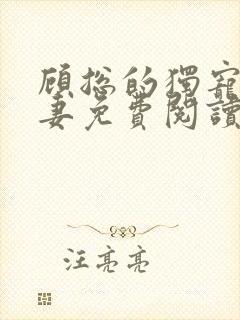 顾总的獨寵
妻免費閱讀
汪亮亮